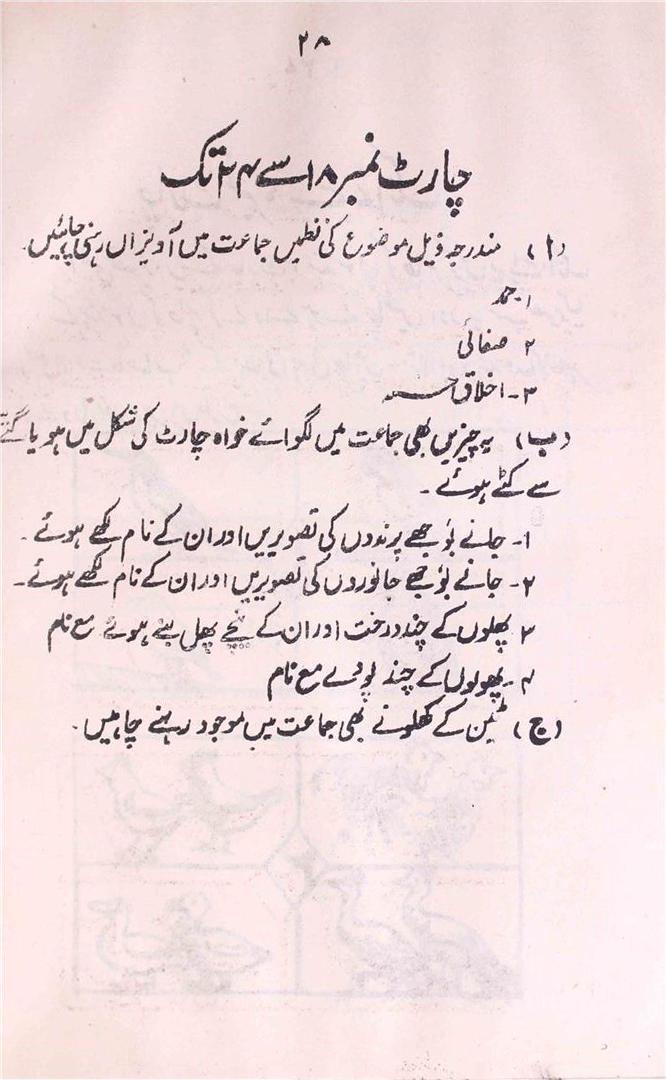 ۲۸
چارٹ نمبر ۱۸ سے ۲۴ تک
(ا) مندرجہ ذیل موضوع کی نظمیں جماعت میں آویزاں رہنی چاہئیں۔
۱۔ حمد
۲ صفائی
۳۔ اخلاق حسنہ
(ب) یہ چیزیں بھی جماعت میں لگوائے خواہ چارٹ کی شکل میں ہو یا گتے
سے کٹے ہوئے۔
۱۔ جانے بوجھے پرندوں کی تصویریں اور ان کے نام لکھے ہوئے۔
۲۔ جانے بوجھے جانوروں کی تصویریں اور ان کے نام لکھے ہوئے۔
۳ پھلوں کے چند درخت اور ان کے نیچے پھل بنے ہوئے مع نام
۴۔ پھولوں کے چند پودے مع نام
(ج) ٹین کے کھلونے بھی جماعت میں موجود رہنے چاہیں۔